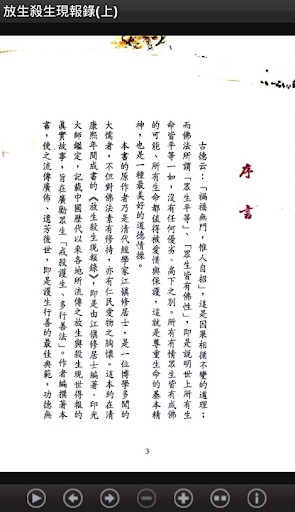 放生殺生現報錄(上)
序言
古德云：「福禍無門，惟人自招」，這是因果相循不變的道理；
而佛法所謂「眾生平等」、「眾生皆有佛性」，即是說明世上所有生
命皆平等一如，沒有任何優劣、高下之別。所有有情眾生皆有成佛
的可能、所有生命都值得被愛清與保護，這就是尊重生命的基本精
神，也是一種最美好的道德情操。
本書的原作者乃是清代經學家江慎修居士，是一位博學多聞的
大儒者，不但對佛法素有修持，亦有仁民愛物之胸懷。這本約在清
康熙年間成書的《放生殺生現報錄》，即是由江慎修居士編著、印光
大師鑑定，記載中國歷代以來各地所流傳之放生與殺生現世得報的
真實故事，旨在廣勸眾生「戒殺護生、多行善法」。作者編撰著本
書，使之流傳廣佈、遺芳後世，即是護生行善的最佳典範，功德無
3